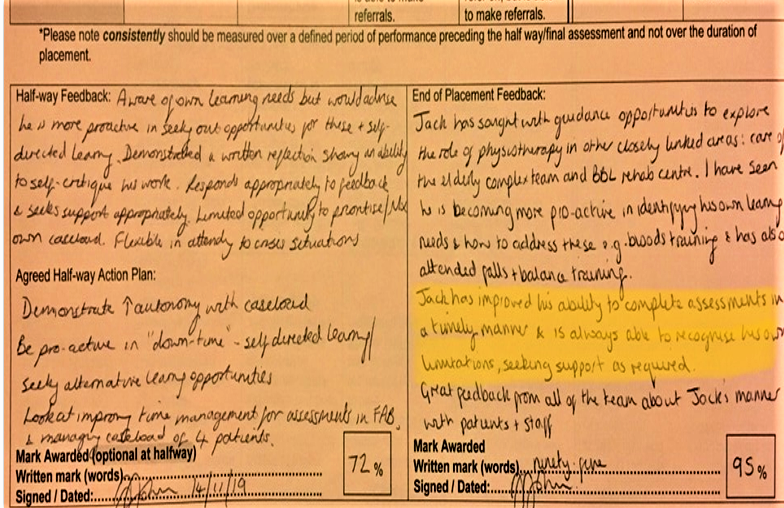 referrals.
to make referrals.
*Please note consistently should be measured over a defined period of performance preceding the half way/final assessment and not over the duration of
placement.
Half-way Feedback: Aware of own learning needs but would advise
he is more proactive in seeking out opportunities for these + self-
directed learng. Demonstrated a written reflection showing an ability
to self-critique his work. Responds appropriately to feedback
& seeks support appropriately. Limited opportunity to prioritise
own caseload. Flexible in attendg to crises situations
Agreed Half-way Action Plan:
Demonstrate ↑ autonomy with caseload
Be pro-active in "down-time" - self directed learng/
seekg alternative learng opportunities
Look at improvg time management for assessments in FAB,
& managing caseload of 4 patients.
Mark Awarded (optional at halfway)
Written mark (words)
Signed / Dated: 14/11/19
72%
End of Placement Feedback:
Jack has sought with guidance opportunities to explore
the role of physiotherapy in other closely linked areas: care of
the elderly complex team and rehab centre. I have seen
he is becoming more pro-active in identifying his own learng
needs & how to address these e.g. bloods training & has also
attended falls + balance training.
Jack has improved his ability to complete assessments in
a timely manner & is always able to recognise his own
limitations, seeking support as required.
Great feedback from all of the team about Jack's manner
with patients + staff
Mark Awarded
Written mark (words) ninety-five
Signed / Dated:
95%